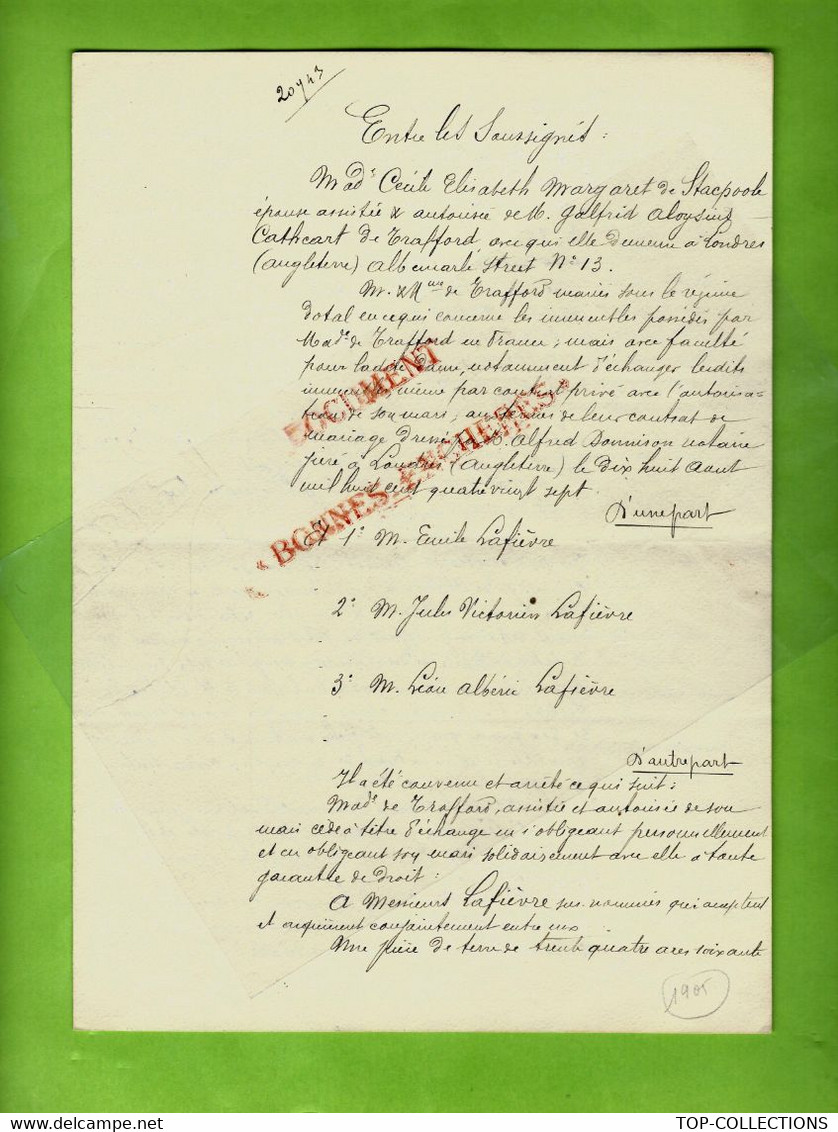 20743
Entre les Soussignés :
Made Cécile Elisabeth Margaret de Stacpoole
épouse assistée & autorisée de M. Galfrid Aloysius
Cathcart de Trafford, avec qui elle demeure à Londres
(Angleterre) Albemarle Street No 13.
M. & Mme de Trafford mariés sous le régime
dotal en ce qui concerne les immeubles possédés par
Made de Trafford en France ; mais avec faculté
pour ladite Dame, notamment d'échanger lesdits
immeubles même par contrat privé avec l'autorisa-
tion de son mari, aux termes de leur contrat de
mariage dressé par M. Alfred Donnison notaire
juré à Londres (Angleterre) le Dix huit Aout
mil huit cent quatre vingt sept.
D'une part
Et 1° M. Emile Lafièvre
2° M. Jules Victorien Lafièvre
3° M. Léon Albéric Lafièvre
D'autre part
Il a été convenu et arrêté ce qui suit :
Made de Trafford, assistée et autorisée de son
mari cède à titre d'échange en s'obligeant personnellement
et en obligeant son mari solidairement avec elle à toute
garantie de droit :
A Messieurs Lafièvre sus-nommés qui acceptent
et acquièrent conjointement entre eux
Une pièce de terre de trente quatre ares soixante
1905
DOCUMENT
BONNES ENCHERES
TOP-COLLECTIONS